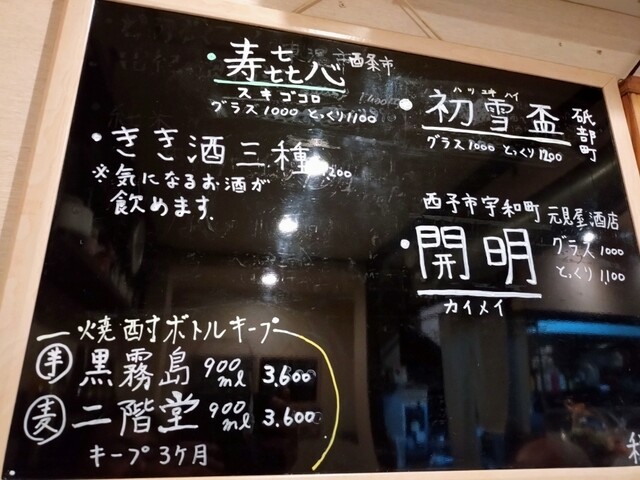 ・寿㐂心 西条市
スキゴコロ
グラス1000 とっくり1,100
・きき酒三種 1,200
※気になるお酒が
飲めます.
ハツユキハイ
・初雪盃 砥部町
グラス1000 とっくり1200
西予市宇和町 元見屋酒店
・開明
カイメイ
グラス1000
とっくり1,100
焼酎ボトルキープ
芋 黒霧島 900ml 3.600
麦 二階堂 900ml 3.600
キープ3ヶ月